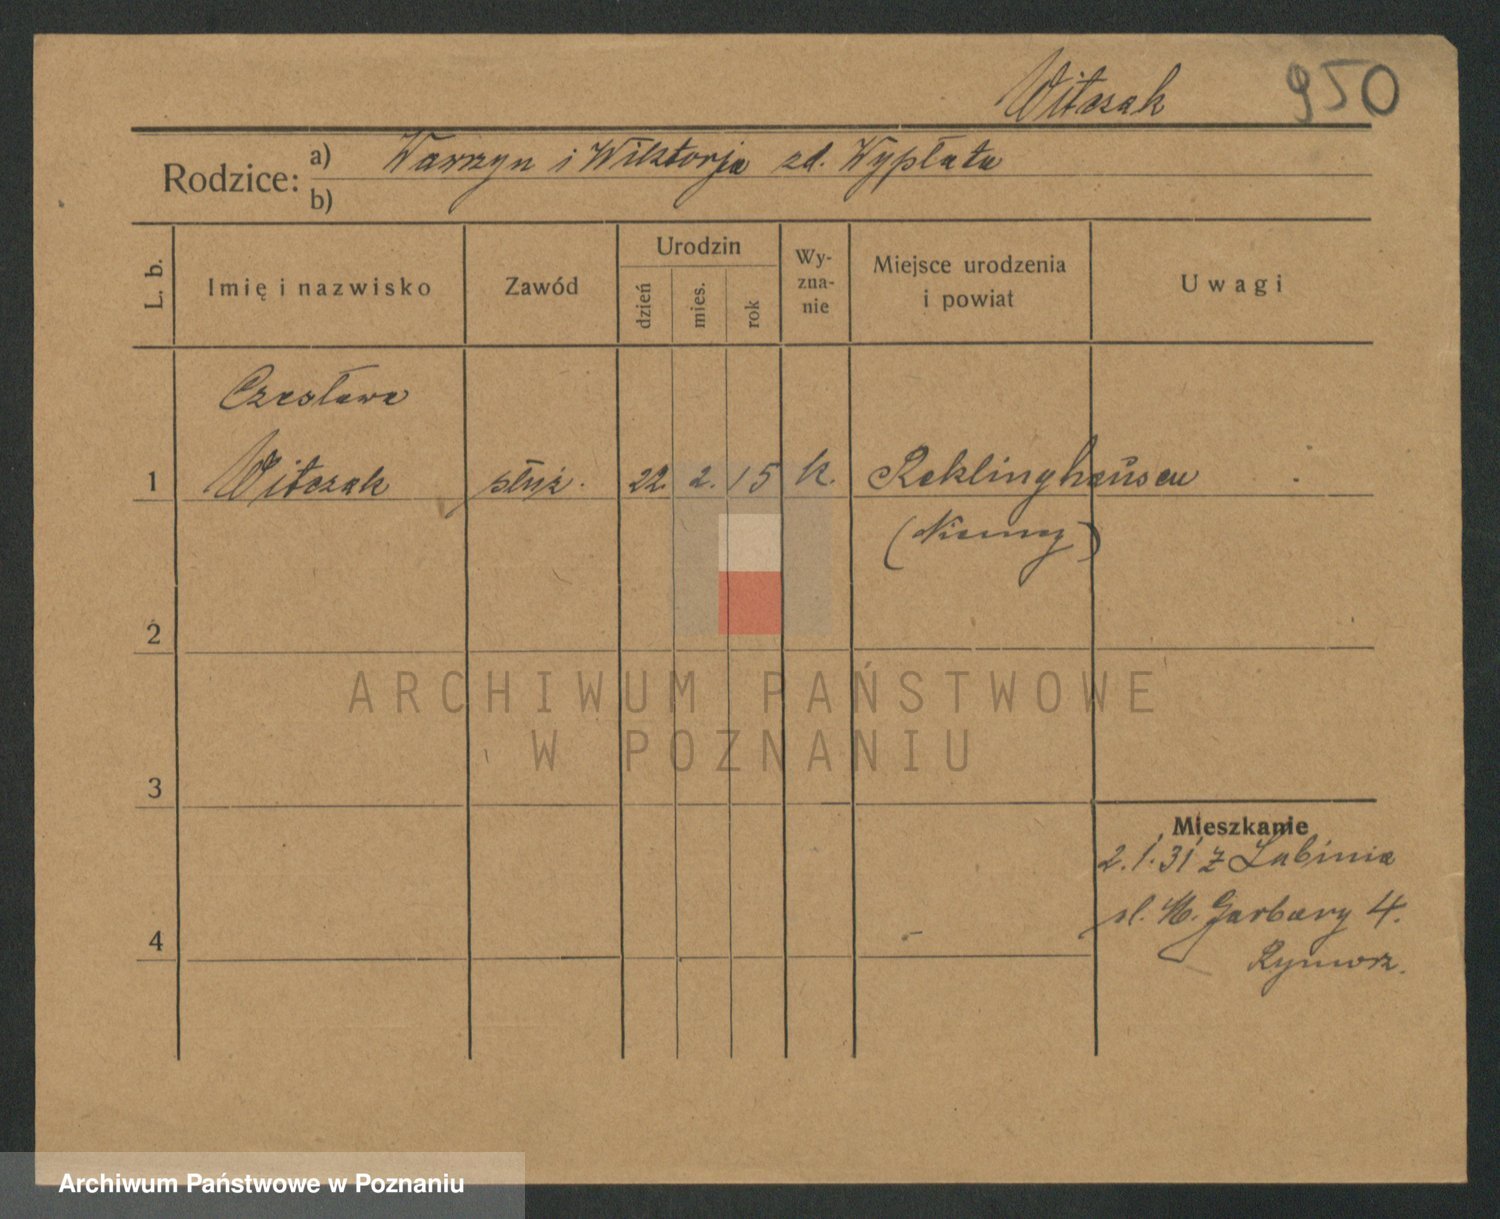 Witczak 950
Rodzice: a) Wawrzyn i Wiktorja zd. Wypłata
b)
L. b. Imię i nazwisko Zawód Urodzin dzień mies. rok Wyznanie Miejsce urodzenia i powiat Uwagi
Czesława
1 Witczak służ. 22. 2. 15 k. Reklinghausen
(Niemcy)
2
ARCHIWUM PAŃSTWOWE
W POZNANIU
3
Mieszkanie
2.1.31 z Lubinia
4
Garbary 4.
Archiwum Państwowe w Poznaniu